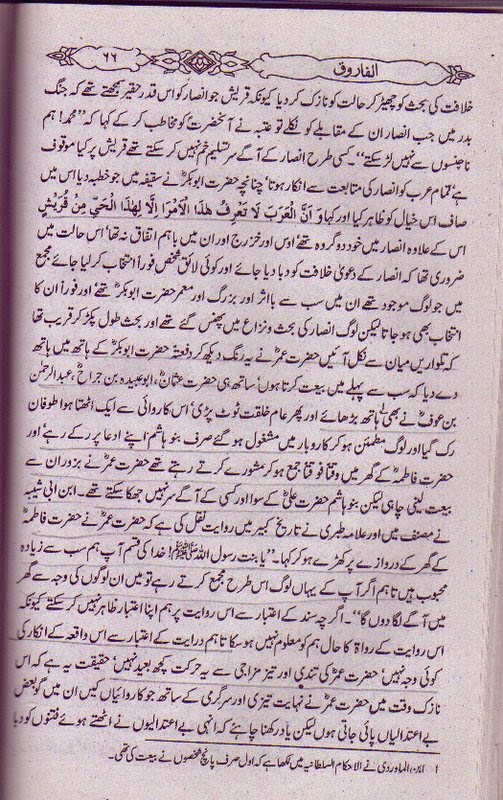 ۶۶
الفاروق
خلافت کی بحث کو چھیڑ کر حالت کو نازک کر دیا کیونکہ قریش جو انصار کو اس قدر حقیر سمجھتے تھے کہ جنگ
بدر میں جب انصار ان کے مقابلے کو نکلے تو عتبہ نے آنحضرتؐ کو مخاطب کر کے کہا کہ ’’محمد! ہم
ناجنسوں سے نہیں لڑ سکتے‘‘۔ کسی طرح انصار کے آگے سر تسلیم خم نہیں کر سکتے تھے قریش پر کیا موقوف
ہے تمام عرب کو انصار کی متابعت سے انکار ہوتا‘ چنانچہ حضرت ابوبکرؓ نے سقیفہ میں جو خطبہ دیا اس میں
صاف اس خیال کو ظاہر کیا اور کہا وَ اَنَّ الْعَرَبَ لَا تَعْرِفُ هٰذَا الْاَمْرَ اِلَّا لِهٰذَا الْحَيِّ مِنْ قُرَيْشٍ
اس کے علاوہ انصار میں خود دو گروہ تھے اوس اور خزرج اور ان میں باہم اتفاق نہ تھا‘ اس حالت میں
ضروری تھا کہ انصار کے دعویٰ خلافت کو دبا دیا جائے اور کوئی لائق شخص فوراً انتخاب کر لیا جائے مجمع
میں جو لوگ موجود تھے ان میں سب سے بااثر اور بزرگ اور معمر حضرت ابوبکرؓ تھے اور فوراً ان کا
انتخاب بھی ہو جاتا لیکن لوگ انصار کی بحث و نزاع میں پھنس گئے تھے اور بحث طول پکڑ کر قریب تھا
کہ تلواریں میان سے نکل آئیں حضرت عمرؓ نے یہ رنگ دیکھ کر دفعتہً حضرت ابوبکرؓ کے ہاتھ میں ہاتھ
دے دیا کہ سب سے پہلے میں بیعت کرتا ہوں‘ ساتھ ہی حضرت عثمانؓ‘ ابوعبیدہ بن جراحؓ‘ عبدالرحمٰن
بن عوفؓ نے بھی ہاتھ بڑھائے ۱ اور پھر عام خلقت ٹوٹ پڑی‘ اس کاروائی سے ایک اٹھتا ہوا طوفان
رک گیا اور لوگ مطمئن ہو کر کاروبار میں مشغول ہو گئے صرف بنو ہاشم اپنے ادعا پر رکے رہے‘ اور
حضرت فاطمہؓ کے گھر میں وقتاً فوقتاً جمع ہو کر مشورے کرتے رہتے تھے حضرت عمرؓ نے بزور ان سے
بیعت لینی چاہی لیکن بنو ہاشم حضرت علیؓ کے سوا اور کسی کے آگے سر نہیں جھکا سکتے تھے۔ ابن ابی شیبہ
نے مصنف میں اور علامہ طبری نے تاریخ کبیر میں روایت نقل کی ہے کہ حضرت عمرؓ نے حضرت فاطمہؓ
کے گھر کے دروازے پر کھڑے ہو کر کہا۔ ’’یا بنت رسول اللہﷺ! خدا کی قسم آپ ہم سب سے زیادہ
محبوب ہیں تاہم اگر آپ کے یہاں لوگ اس طرح مجمع کرتے رہے تو میں ان لوگوں کی وجہ سے گھر
میں آگ لگا دوں گا‘‘۔ اگرچہ سند کے اعتبار سے اس روایت پر ہم اپنا اعتبار ظاہر نہیں کر سکتے کیونکہ
اس روایت کے رواۃ کا حال ہم کو معلوم نہیں ہو سکا تاہم درایت کے اعتبار سے اس واقعہ کے انکار کی
کوئی وجہ نہیں‘ حضرت عمرؓ کی تندی اور تیز مزاجی سے یہ حرکت کچھ بعید نہیں‘ حقیقت یہ ہے کہ اس
نازک وقت میں حضرت عمرؓ نے نہایت تیزی اور سرگرمی کے ساتھ جو کاروائیاں کیں ان میں گو بعض
بے اعتدالیاں پائی جاتی ہوں لیکن یاد رکھنا چاہئے کہ انہی بے اعتدالیوں نے اٹھتے ہوئے فتنوں کو دبا
۱ ابن الماوردی نے الاحکام السلطانیہ میں لکھا ہے کہ اول صرف پانچ شخصوں نے بیعت کی تھی۔